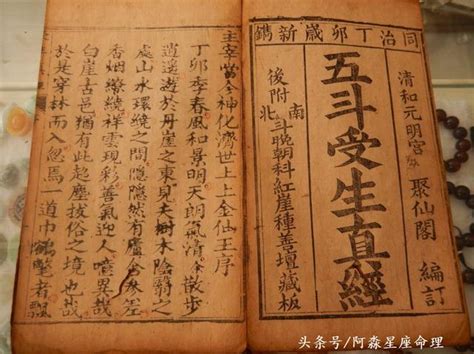 同治丁卯歲新鐫
清和元明宮
聚仙閣 編訂
五斗受生真經
後附南北斗晚朝科紅崖種善壇藏板
主宰當今神化濟世上上金仙王序
丁卯季春風和景明天朗氣清余散步
逍遙遊於丹崖之東見夫樹木陰翳之
處山水環繞之間隱隱然有廬舍參差
香烟繚繞祥雲現彩善氣迎人噫異哉
白崖古邑猶有此超塵拔俗之境也哉
於是穿林而入忽焉一道巾鶴氅者
头条号/阿淼星座命理